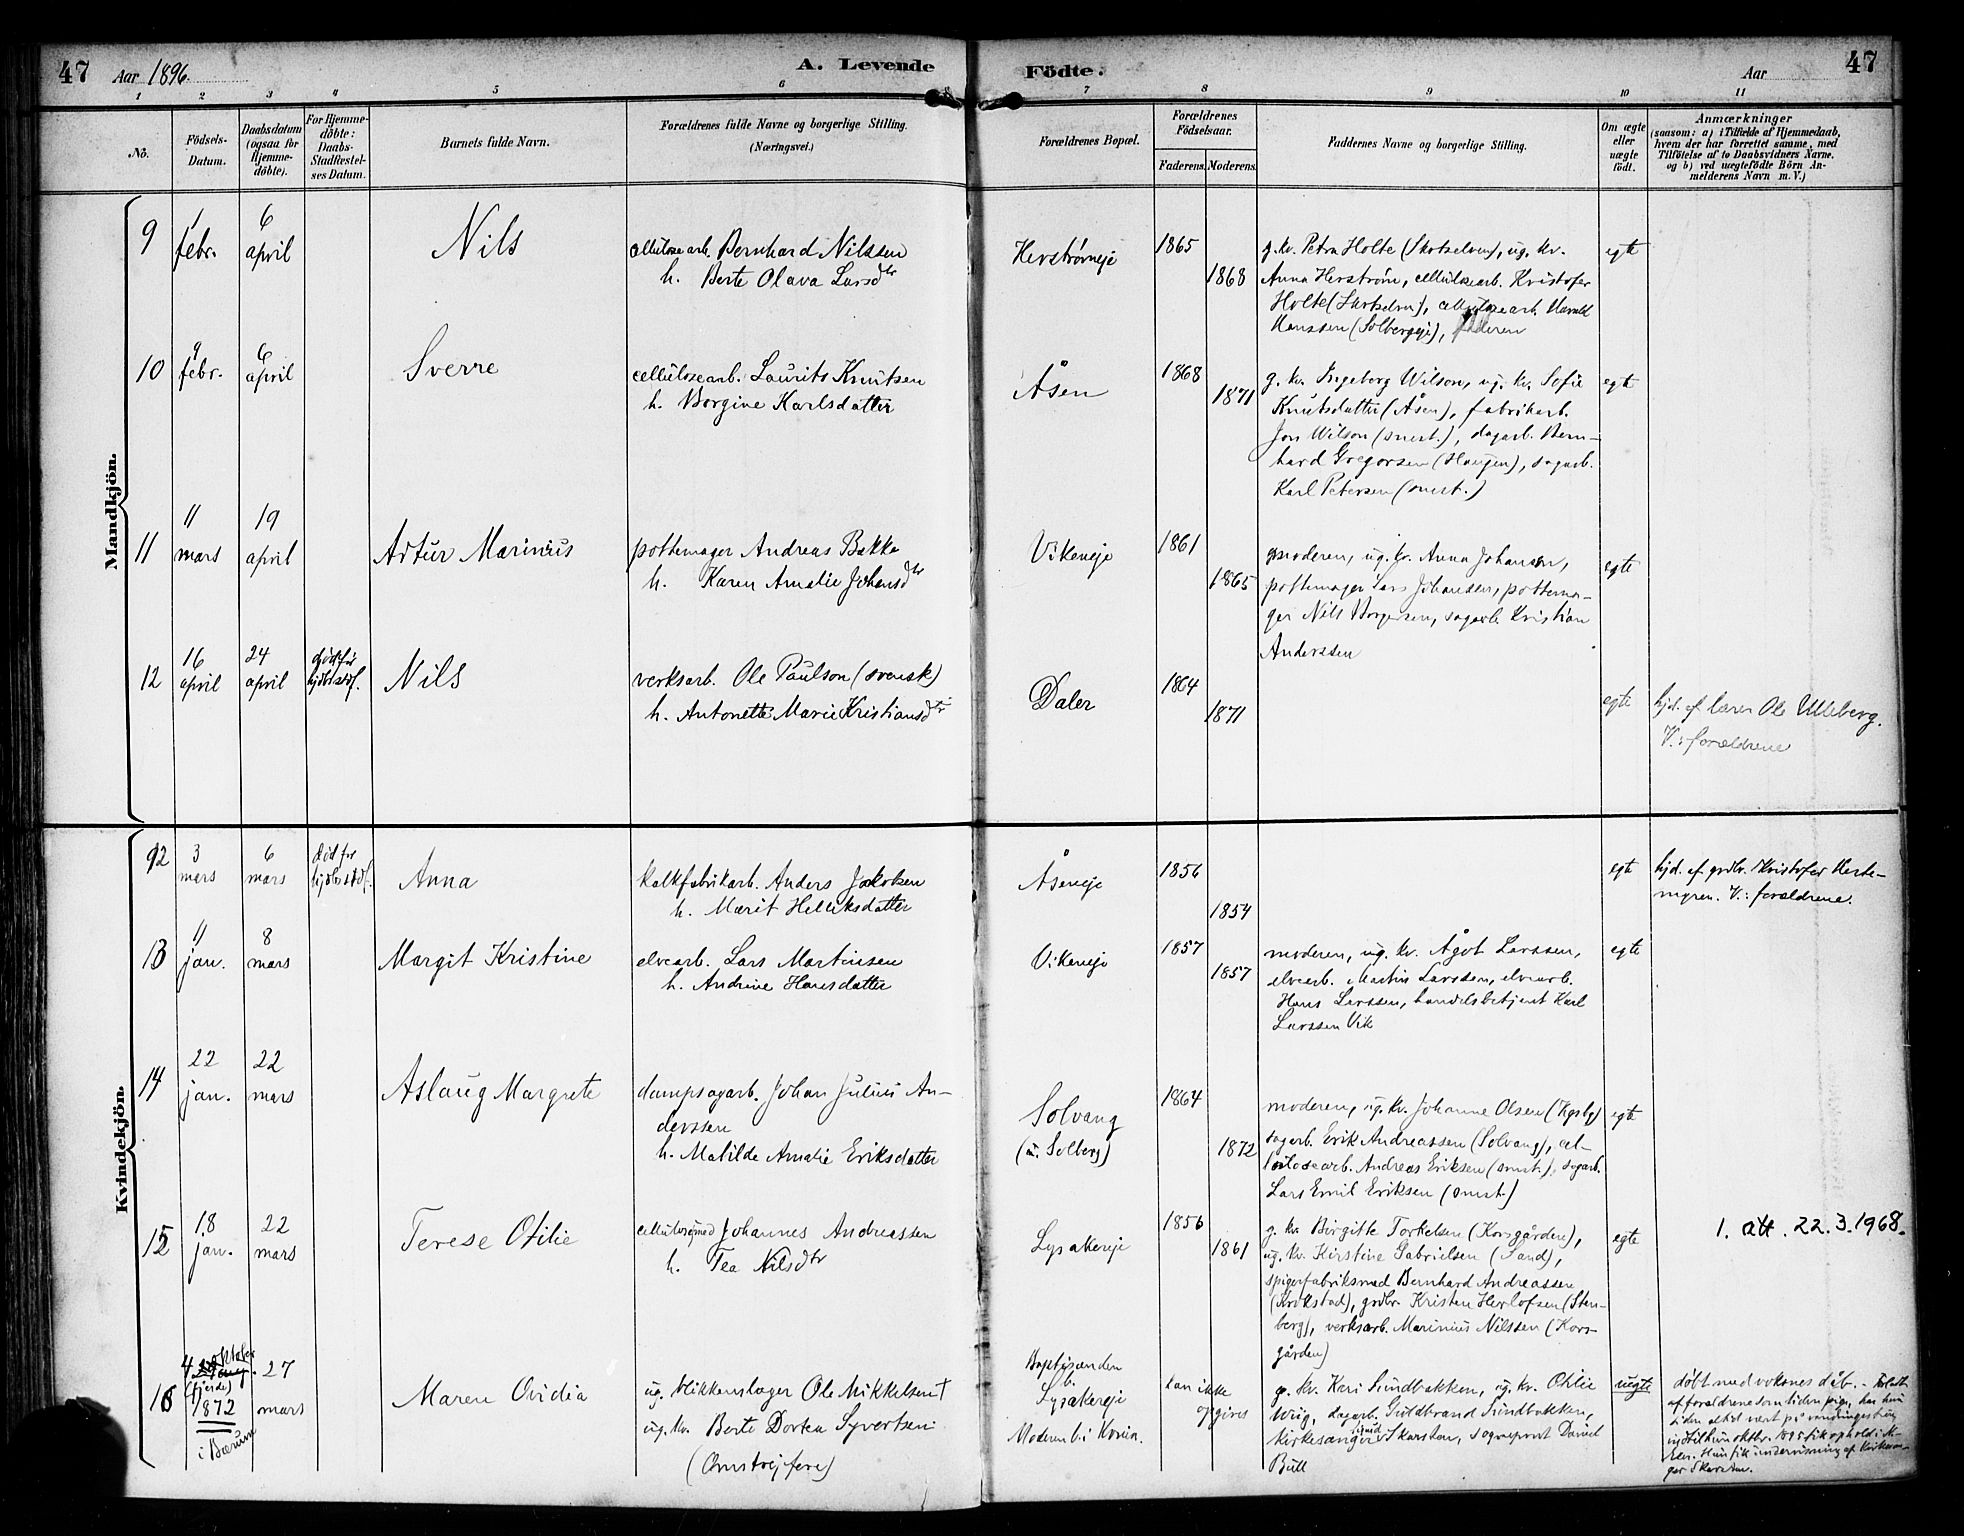 47 Aar 1896. A. Levende Födte. Aar 47
1 2 3 4 5 6 7 8 9 10 11
No.
Födsels-
Datum.
Daabsdatum
(ogsaa for
Hjemme-
döbte).
For Hjemme-
döbte:
Daabs-
Stadfæstel-
ses Datum.
Barnets fulde Navn.
Forældrenes fulde Navne og borgerlige Stilling.
(Næringsvei.)
Forældrenes Bopæl.
Forældrenes
Födselsaar.
Faderens. Moderens.
Faddernes Navne og borgerlige Stilling.
Om ægte
eller
uægte
födt.
Anmærkninger
(saasom: a) i Tilfælde af Hjemmedaab,
hvem der har forrettet samme, med
Tilföielse af to Daabsvidners Navne.
og b) ved uægtefödte Börn An-
melderens Navn m. V.)
Mandkjön.
9
1
febr.
6
april
Nils
cellulosearb. Bernhard Nilssen
h. Berte Olava Larsdtr
Herstrømeje
1865
1868
g. kv. Petra Holte (Skotselven), ug. kv.
Anna Herstrøm, cellulosearb. Kristofer
Holte (Skotselven), cellulosearb. Harald
Hanssen (Solbergeje), faderen
egte
10
9
febr.
6
april
Sverre
cellulosearb. Laurits Knutsen
h. Borgine Karlsdatter
Åsen
1868
1871
g. kv. Ingeborg Wilson, ug. kv. Sofie
Knutsdatter (Åsen), fabrikarb.
Jon Wilson (smst.), dagarb. Bern-
hard Gregorsen (Haugen), sagarb.
Karl Petersen (smst.)
egte
11
11
mars
19
april
Artur Marinius
pottemager Andreas Bakke
h. Karen Amalie Johansdtr
Vikeneje
1861
1865
moderen, ug. kv. Anna Johansen,
pottemager Lars Johansen, pottema-
ger Nils Borgersen, sagarb. Kristian
Anderssen
egte
12
16
april
24
april
død før
hjdbstdf.
Nils
verksarb. Ole Paulson (svensk)
h. Antonette Marie Kristiansdtr
Daler
1864
1871
egte
hjd. af lærer Ole Ulleberg.
V.: forældrene
Kvindekjön.
12
3
mars
6
mars
død før
hjdbstdf.
Anna
kalkfabrikarb. Anders Jakobsen
h. Marit Helliksdatter
Åseneje
1856
1854
egte
hjd. af grdbr. Kristofer Herte-
myren. V.: forældrene.
13
11
jan.
8
mars
Margit Kristine
elvearb. Lars Martinsen
h. Andrine Hansdatter
Vikeneje
1857
1857
moderen, ug. kv. Ågot Larssen,
elvearb. Martin Larssen, elvearb.
Hans Larssen, handelsbetjent Karl
Larssen Vik
egte
14
22
jan.
22
mars
Aslaug Margrete
dampsagarb. Johan Julius An-
derssen
h. Matilde Amalie Eriksdatter
Solvang
(u. Solberg)
1864
1872
moderen, ug. kv. Johanne Olsen
sagarb. Erik Andreassen (Solvang), cel-
lulosearb. Andreas Eriksen (smst.), sagarb.
Lars Emil Eriksen (smst.)
egte
15
18
jan.
22
mars
Terese Otilie
cellulosesmed Johannes Andreassen
h. Tea Nilsdtr
Lysakereje
1856
1861
g. kv. Birgitte Torkelsen (Korsgården),
ug. kv. Kirstine Gabrielsen (Sand),
spigerfabriksmed Bernhard Andreassen
(Krokstad), grdbr. Kristen Herlofsen (Sten-
berg), verksarb. Marinius Nilssen (Kors-
gården)
egte
1. att. 22.3.1968.
16
4 oktober
(fjerde)
1872
i Bærum
27
mars
Maren Ovidia
ug. blikkenslager Ole Mikkelsen †
ug. kv. Berte Dortea Syvertsen
(Omstrejfere)
Baptisanden
b.
Lysakereje
Moderen b. i Kania.
kan ikke
opgives
g. kv. Kari Sundbakken, ug. kv. Otilie
Wiig, dagarb. Guldbrand Sundbakken,
kirkesanger Skarsten, sogneprest Daniel
Bull
uegte
døbt med voksnes dåb. –
af forældrene som liden pige, har hun
siden altid vært på vandring
indtil hun oktbr. 1895 fik ophold i N.
Eker. Hun fik undervisning af kirkesan-
ger Skarsten.